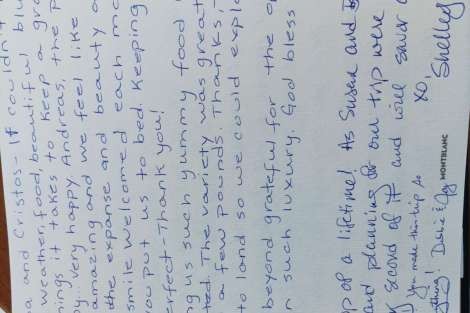 a and Cristos - If couldn't
weather, food, beautiful blu
nings it takes to keep a gro
py... very happy. Andreas, the p
amazing and we feel like
the expanse and beauty o
smile welcomed each mo
ow put us to bed. Keeping
erfect - Thank you!
ng us such yummy food
ted. The variety was great
a few pounds. Thanks -
to land so we could explo
beyond grateful for the op
n such luxury. God bless
ip of a lifetime! As Susan and
and planning for our trip were
second of it and will savor
XO,
Shelly
You made this trip so
ything! Debi &
MONTBLANC